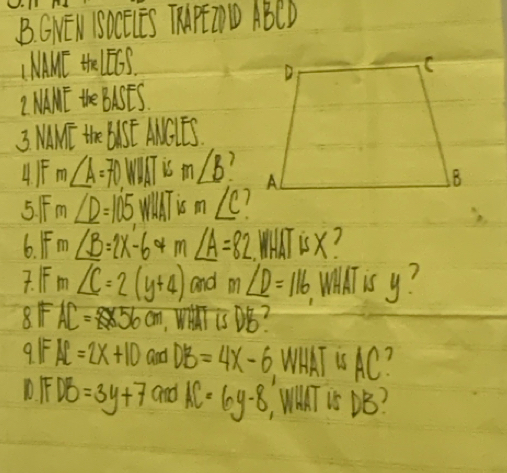 B. GIVEN ISOCELES TRAPEZOID ABCD
1. NAME the LEGS.
2. NAME the BASES.
3. NAME the BASE ANGLES.
4. IF m∠A=70, WHAT is m∠B?
5. IF m∠D=105, WHAT is m∠C?
6. IF m∠B=2X-6 & m∠A=82, WHAT is X?
7. IF m∠C=2(y+4) and m∠D=116, WHAT is y?
8. IF AC=56 cm, WHAT is DB?
9. IF AC=2X+10 and DB=4X-6, WHAT is AC?
10. IF DB=3y+7 and AC=6y-8, WHAT is DB?
D C
A B